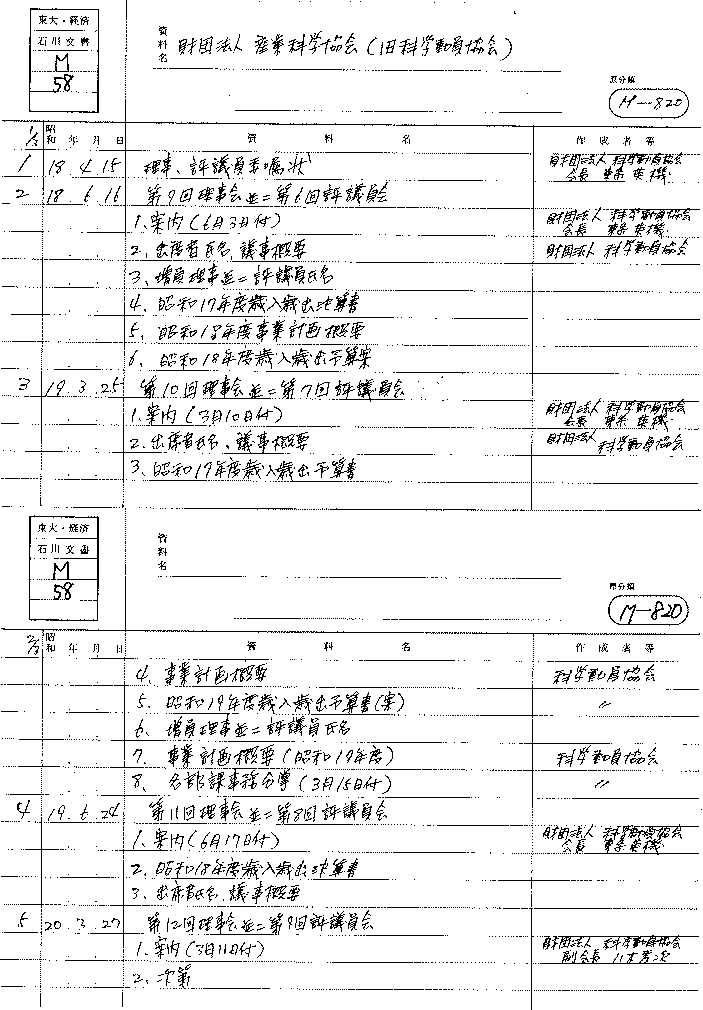 東大・経済
石川文書
M
58
資料名
財団法人 産業科学協会(旧科学動員協会)
原分類
M-820
1/3 昭和 年 月 日 資料名 作成者等
1 18 4 15 理事、評議員委嘱状 財団法人 科学動員協会
会長
2 18 6 16 第9回理事会並ニ第6回評議員会
1. 案内(6月3日付) 財団法人 科学動員協会
会長
2. 出席者氏名、議事概要 財団法人 科学動員協会
3. 増員理事並ニ評議員氏名
4. 昭和17年度歳入歳出決算書
5. 昭和18年度事業計画概要
6. 昭和18年度歳入歳出予算案
3 19 3 25 第10回理事会並ニ第7回評議員会
1. 案内(3月10日付) 財団法人 科学動員協会
会長
2. 出席者氏名、議事概要 財団法人 科学動員協会
3. 昭和19年度歳入歳出予算書
東大・経済
石川文書
M
58
資料名
原分類
M-820
2/3 昭和 年 月 日 資料名 作成者等
4. 事業計画概要 科学動員協会
5. 昭和19年度歳入歳出予算書(案) 〃
6. 増員理事並ニ評議員氏名
7. 事業計画概要(昭和19年度) 科学動員協会
8. 各部課事務分掌(3月15日付) 〃
4 19 6 24 第11回理事会並ニ第8回評議員会
1. 案内(6月17日付) 財団法人 科学動員協会
会長
2. 昭和18年度歳入歳出決算書
3. 出席者氏名、議事概要
5 20 3 27 第12回理事会並ニ第9回評議員会
1. 案内(3月11日付) 財団法人 科学動員協会
副会長 八木秀次
2. 次第